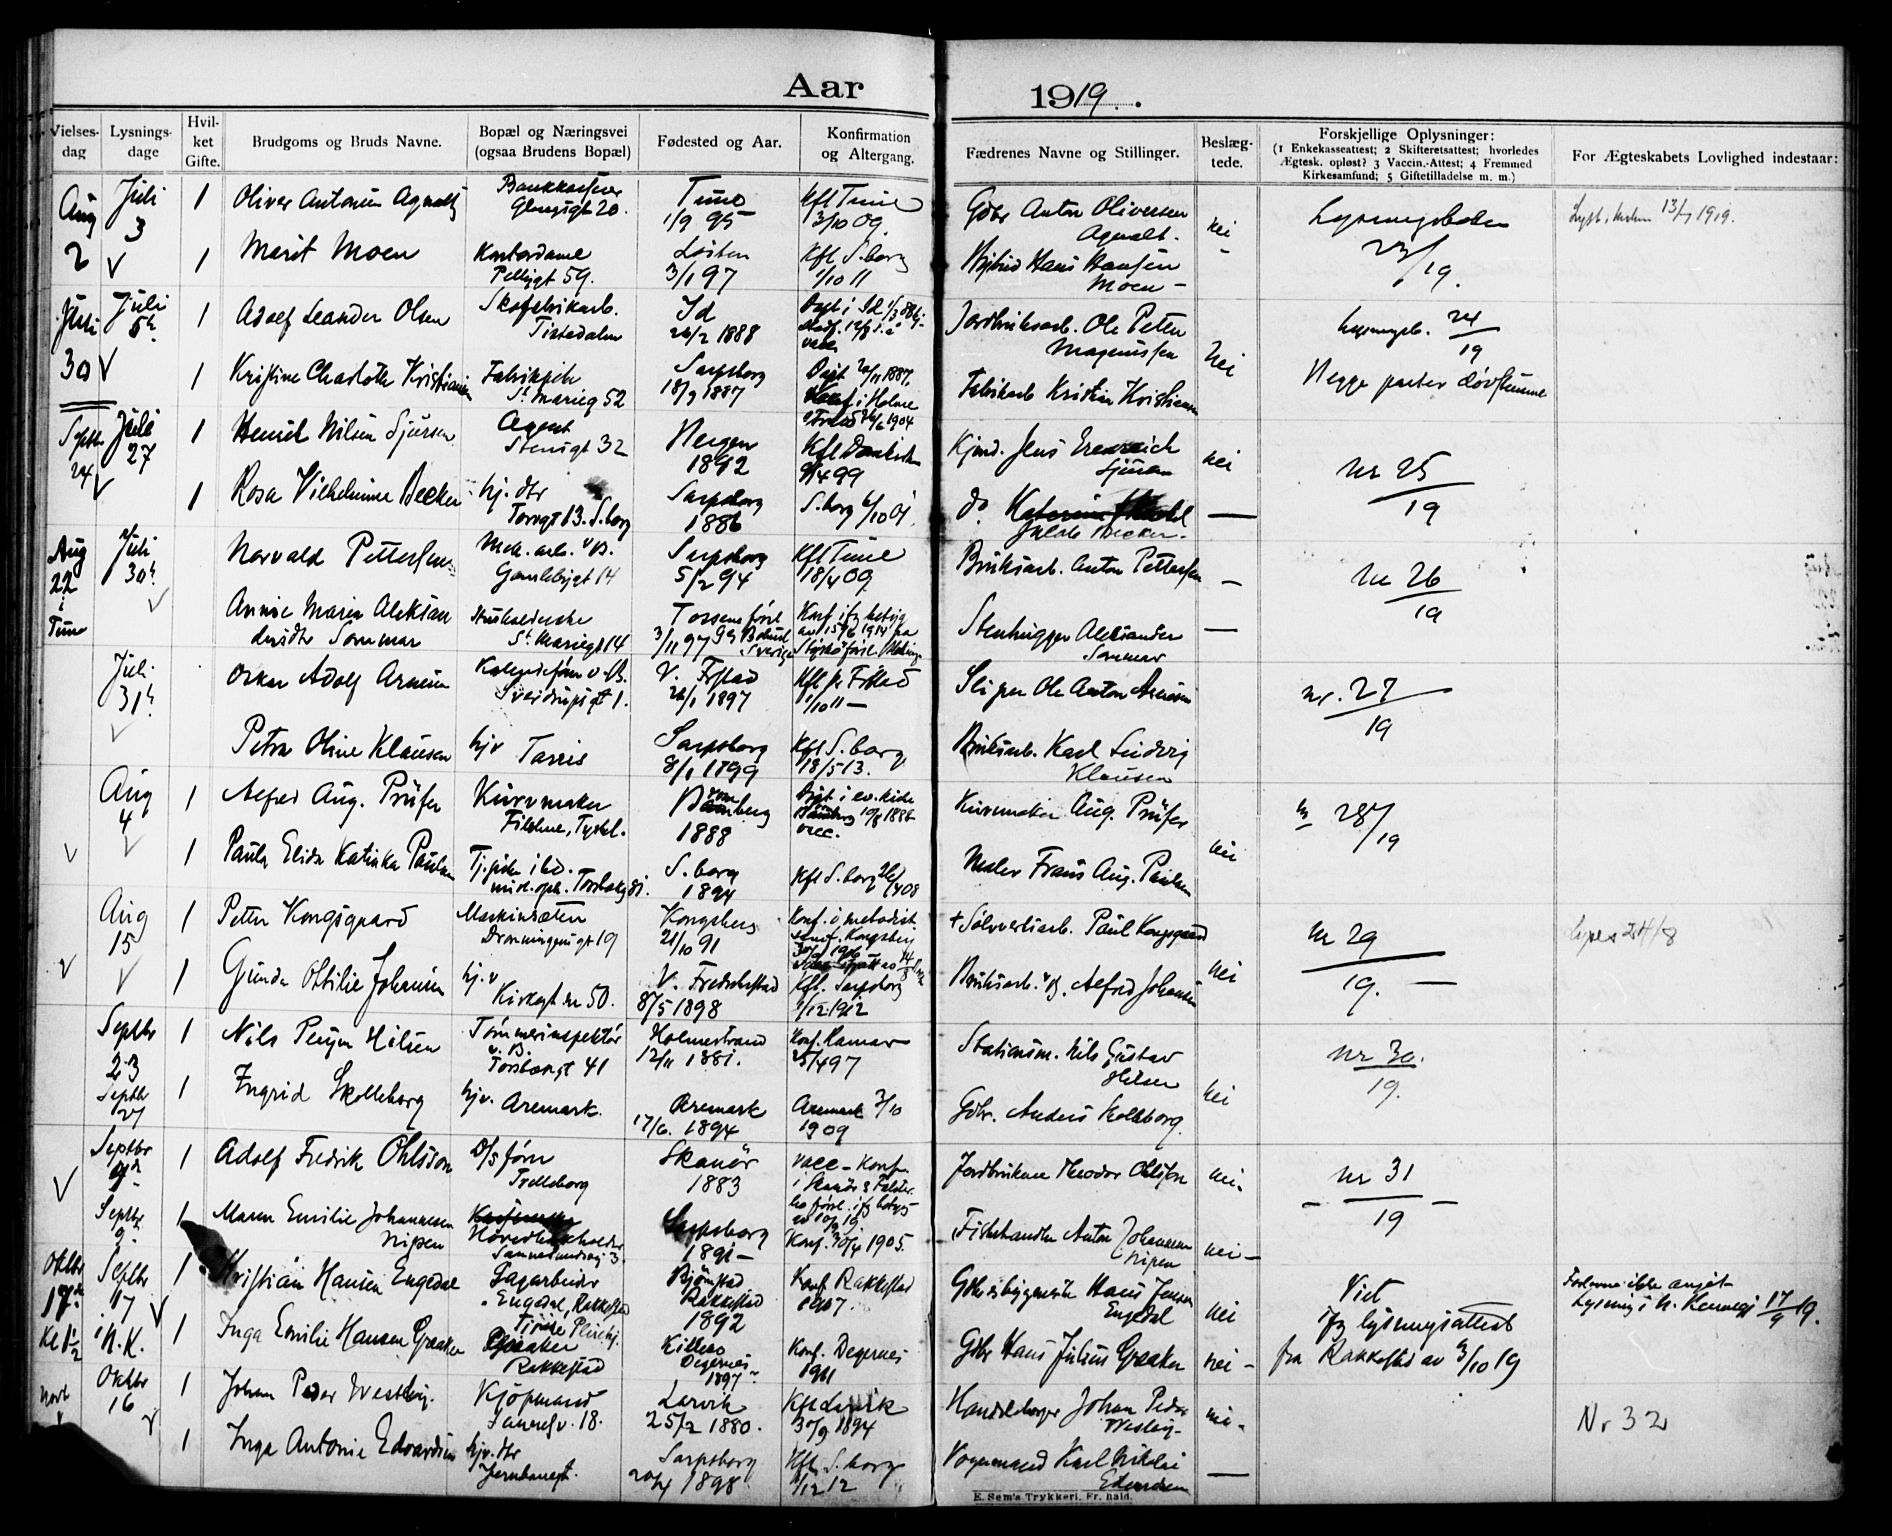 Aar 1919.
Vielses-dag
Lysnings-dage
Hvil-ket Gifte.
Brudgoms og Bruds Navne.
Bopæl og Næringsvei (ogsaa Brudens Bopæl)
Fødested og Aar.
Konfirmation og Altergang.
Fædrenes Navne og Stillinger.
Beslæg-tede.
Forskjellige Oplysninger:
(1 Enkekasseattest; 2 Skifteretsattest; hvorledes Ægtesk. opløst? 3 Vaccin.-Attest; 4 Fremmed Kirkesamfund; 5 Giftetilladelse m. m.)
For Ægteskabets Lovlighed indestaar:
Aug 2 Juli 3 1 Oliver Antonius Agnalt Bankkasserer Glengsgt 20. Tune 1/9 95 Kft Tune 3/10 09. Gdbr Anton Oliversen Agnalt. nei Lysningsboken 23/19.
1 Marit Moen Kontordame Pellygt 59. Løiten 3/1 97 Kft S.borg 1/10 11 Hans Hansen Moen
Juli 30 Juli 5te 1 Adolf Leander Olsen Skofabrikarb. Tistedalen Id 26/2 1888 Jordbruksarb. Ole Peter Magnussen nei Lysningsb. 24/19
1 Kristine Charlotte Kristiansen Fabrikpike St. Marieg 52 Sarpsborg 18/9 1887 Døpt 20/11 1887, Konf i Holme 1904 Fabrikarb Kristian Kristiansen Begge parter døvstumme
Septbr 24 Juli 27 1 Henrik Nilsen Sjursen Agent Stensgt 32 Bergen 1892 Kft Domkirken 99 Kjøbmd. Jens Sjursen nei nr 25/19
1 Rosa Vilhelmine Becker hj. dtr Torvgt 13. S.borg Sarpsborg 1886 S.borg 6/10 01. do. Jakob Becker.
Aug 22 i Tune Juli 30te Norvald Pettersen Mek. arb. v B. Gamlebygt 14 Sarpsborg 5/2 94 Kft Tune 18/4 09 Bruksarb. Anton Pettersen nr 26/19
Annie Maria Aleksandersdtr Sommar Husholderske St. Mariegt 14 3/11 97 Sverige Stenhugger Aleksander Sommar
Juli 31te Oskar Adolf Arnesen Sverdrupsgt 1. V. Frstad 26/1 1897 Kft Fr.stad 1/10 11 Sliper Ole Anton Arnesen nr. 27/19
Petra Oline Klausen hjv Tarris Sarpsborg 8/1 1899 Kft S.borg 18/5 13. Bruksarb. Karl Ludvig Klausen
Aug 4 1 Alfred Aug. Prüfer Kurvmaker Filehne, Tyskl. 1888 Døpt i ev. kirke 10/8 1888 vacc. Kurvmaker Aug. Prüfer nr 28/19
1 Paula Elida Katinka Paulsen Tj.pike S.borg 1894 Kft S.borg 26/4 08 Maler Frans Aug. Paulsen nei
Aug 15 1 Petter Kongsgaard Maskinsætter Dronningensgt 19 Kongsberg 21/10 91 Konf. i metodist samf. Kongsberg + Sølvverksarb. Paul Kongsgaard nr 29/19. Lyses 24/8
1 Gunda Othilie Johansen hj.v Kirkegt nr 50. V. Fredrikstad 8/5 1898 Kft. Sarpsborg 1/12 1912 Bruksarb. v B. Alfred Johansen nei
Septbr 23 1 Nils Hilsen Tømmerinspektør v. B. Torsbergt 41 Holmestrand 12/11 1881. Konf. Hamar 25/4 97 Stationsm. Nils Gustav Hilsen nr 30./19.
Septbr 27 1 Ingrid Skolleborg hjv. Aremark. Aremark 17/6. 1894 Aremark 3/10 1909 Gdbr. Anders Kolleborg nei
Septbr 1 Adolf Fredrik Ohlsson D/S fører Trelleborg Skanör 1883 vacc - Konf. i Skanör & Falsterbo Jordbruker Theodor Ohlsson nei. nr 31/19
Septbr 9. 1 Maren Emilie Johannesen Nipen Sannesundsvej 3. Sarpsborg 1891 Konf. 30/4 1905. Fiskehandler Anton Johannesen Nipen nei
Oktbr 17de Kl 1 1/2 Septbr 17 i N.K. 1 Kristian Hansen Engedal Sagarbeider Engedal, Rakkestad Bjørnstad Rakkestad 1892 Konf Rakkestad 1907. Hans Jensen Engedal nei Viet ifg lysningsattest fra Rakkestad av 3/10 19 Forlovere ikke angit Lysning i N. 17/9 19.
1 Inga Emilie Hansen Graaker Graaker Rakkestad Degernes 1897 Konf. Degernes 1911 Gdbr Hans Julius Graaker nei
Novbr Oktbr 16 1 Johan Peder Westby. Kjøpmand 18. Larvik 25/2 1880. Kft Larvik 30/9 1894 Johan Peder Westby nei. Nr 32
1 Inga Antonie Edvardsen hjv. dtr Jernbanegt. Sarpsborg 20/4 1898 Kft S.borg 1/12 12 Vognmand Karl Nikolai Edvardsen
E. Sem's Trykkeri, Fr.hald.